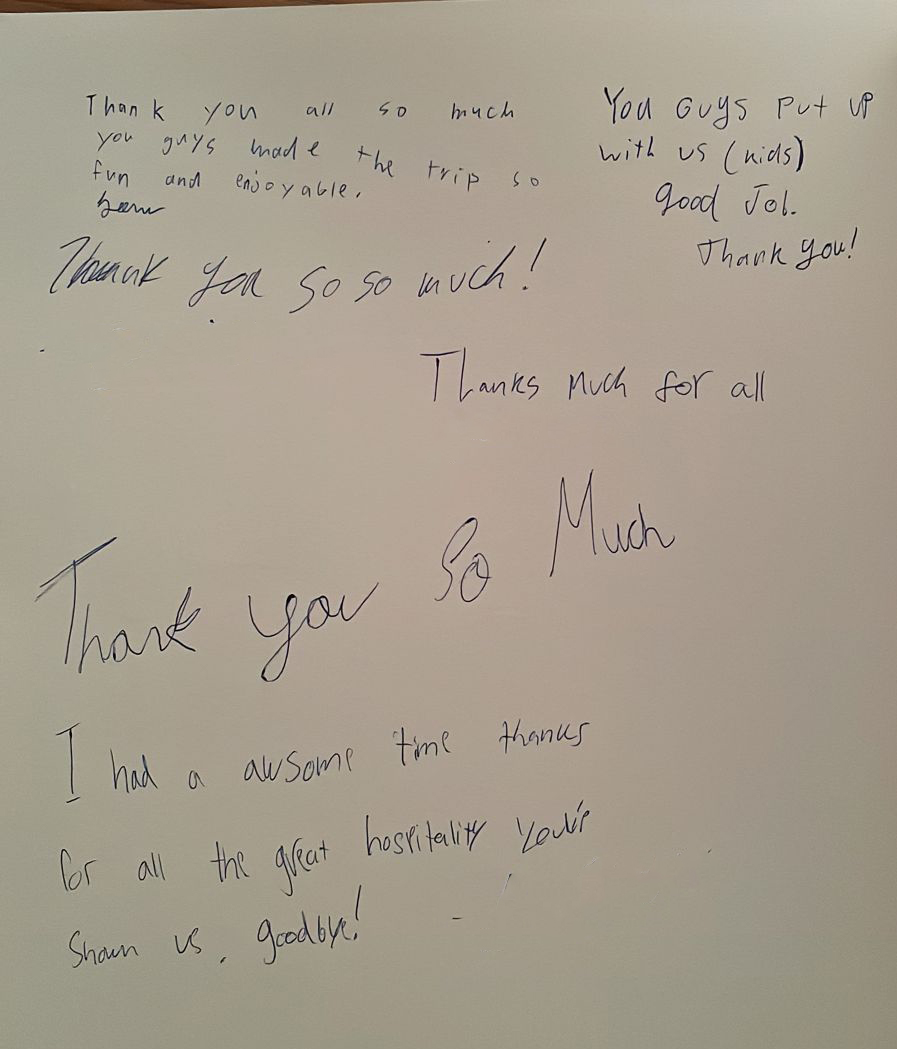 Thank you all so much
you guys made the trip so
fun and enjoyable.
You Guys Put up
with us (kids)
good Job.
Thank you!
Thank you so so much!
Thanks Much for all
Thank you So Much
I had a awsome time thanks
for all the great hospitality you've
Shown us, goodbye!